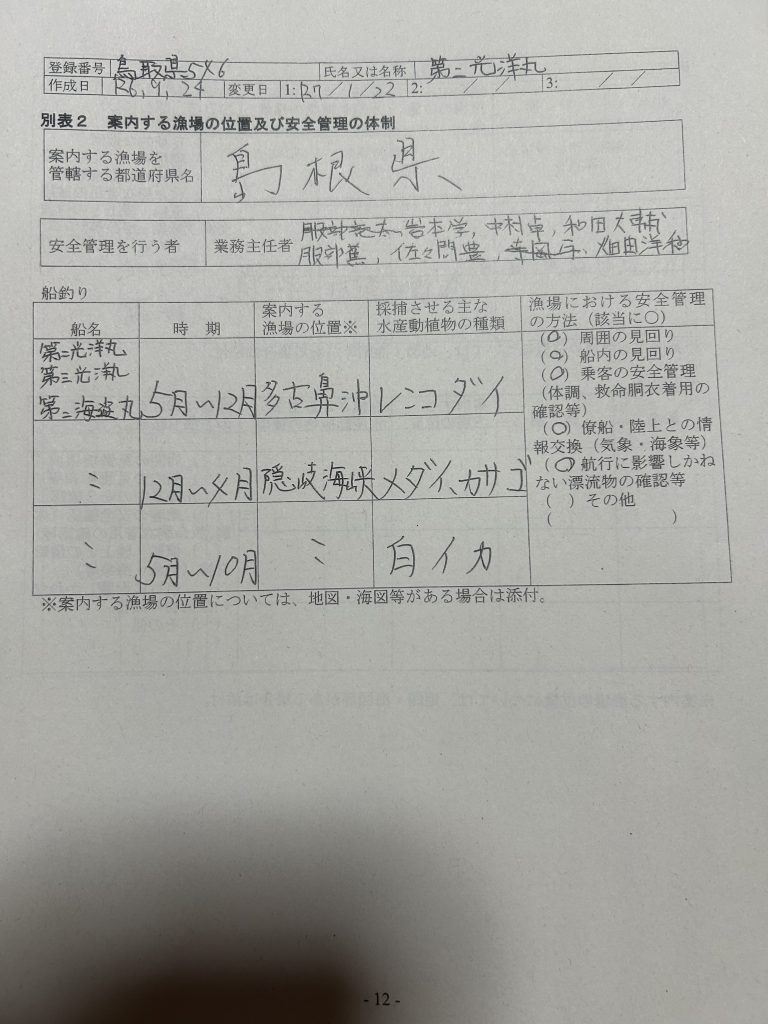 登録番号 鳥取県546 氏名又は名称 第二光洋丸
作成日 R6, 9, 24 変更日 1: R7/1/22 2: / / 3: / /
別表2 案内する漁場の位置及び安全管理の体制
案内する漁場を
管轄する都道府県名
島根県
安全管理を行う者 業務主任者
岩本学, 中村卓, 和田大輔
服部薫, 佐々間豊, 畑由洋和
船釣り
船名 時期
案内する
漁場の位置※
採捕させる主な
水産動植物の種類
漁場における安全管理
の方法(該当に○)
第二光洋丸
第三光洋丸
第二海盗丸 5月〜12月 多古鼻沖 レンコダイ
〃 12月〜4月 隠岐海峡 メダイ、カサゴ
〃 5月〜10月 〃 白イカ
(○) 周囲の見回り
(○) 船内の見回り
(○) 乗客の安全管理
(体調、救命胴衣着用の
確認等)
(○) 僚船・陸上との情
報交換(気象・海象等)
(○) 航行に影響しかね
ない漂流物の確認等
( ) その他
( )
※案内する漁場の位置については、地図・海図等がある場合は添付。
- 12 -